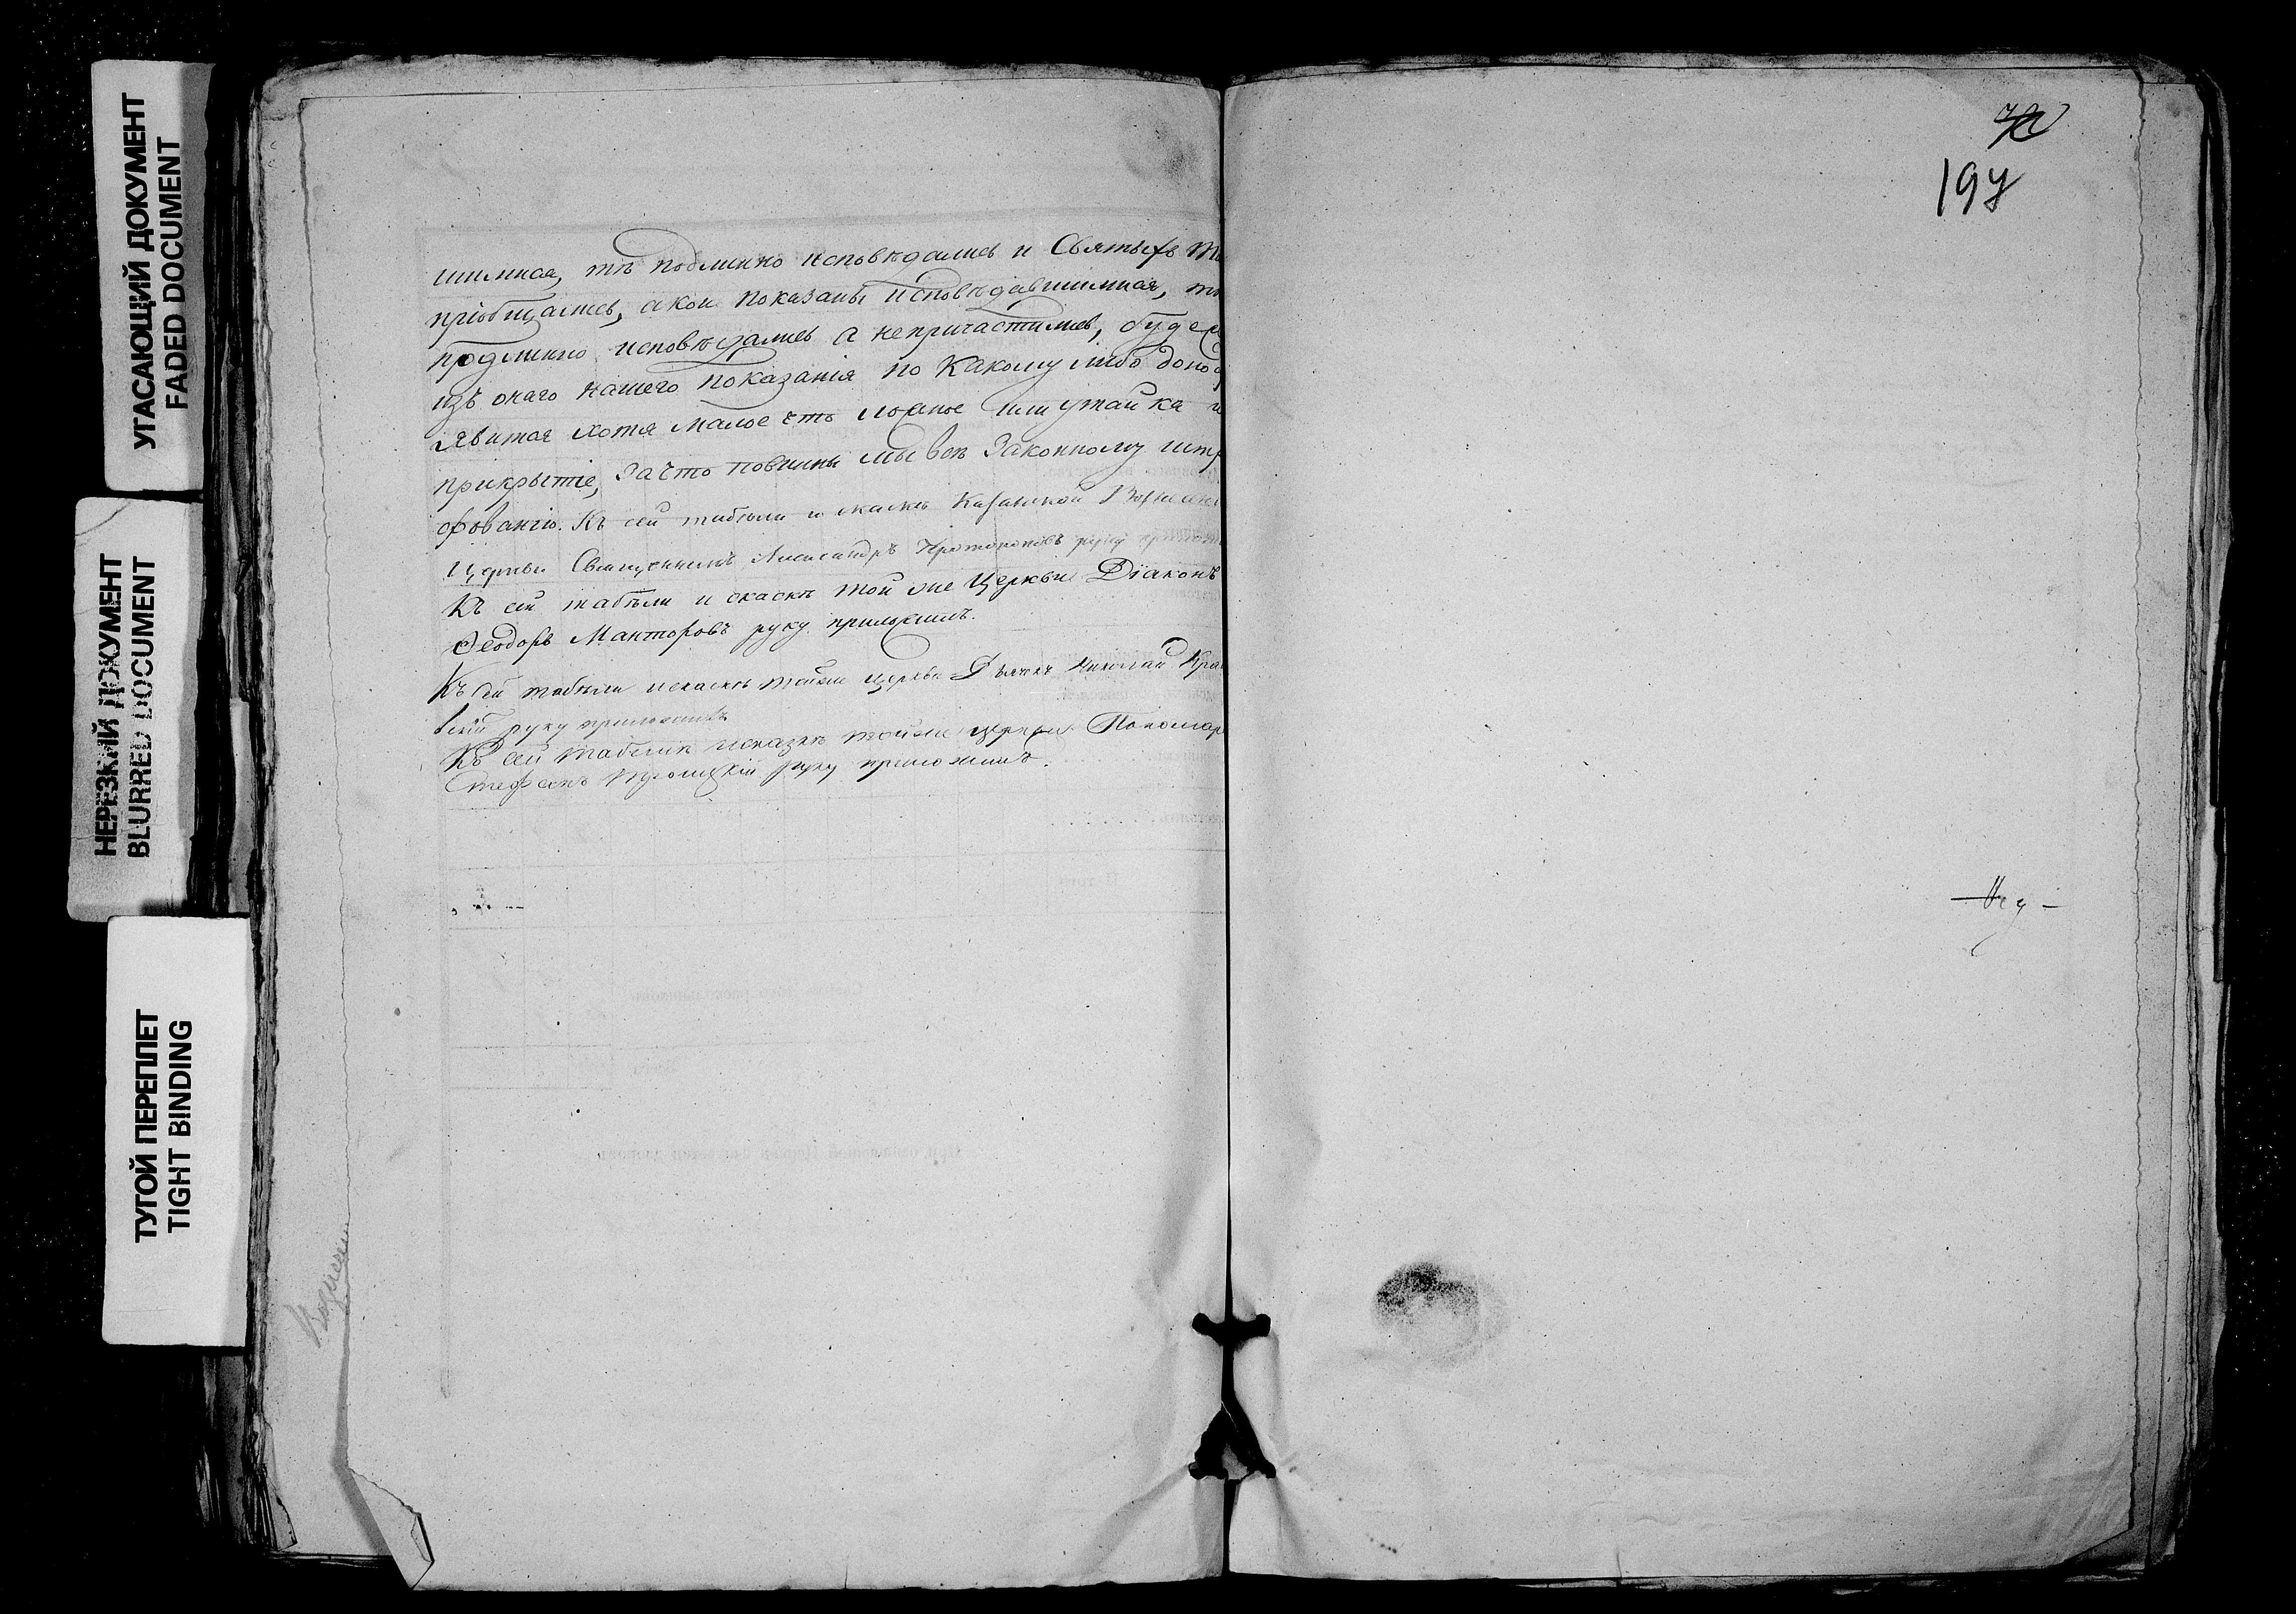 УГАСАЮЩИЙ ДОКУМЕНТ
FADED DOCUMENT
НЕРЕЗКИЙ ДОКУМЕНТ
BLURRED DOCUMENT
ТУГОЙ ПЕРЕПЛЕТ
TIGHT BINDING
шимися, тѣ подлинно исповѣдались и Святыхъ
пріобщались, а кои показаны исповѣдавшимися,
подлинно исповѣдались а непричастились, буде
изъ онаго нашего показанія по какому либо
явится хотя малое что ложное или утайка
прикрытіе, за что повинны мы всѣ законному
фованію. Къ сей табели и скаскѣ Казанской
Церкви Священникъ Александръ Протопоповъ руку
Къ сей табели и скаскѣ той же Церкви Діаконъ
Ѳеодоръ Манторовъ руку приложилъ.
Къ сей табели и скаскѣ тойже церкви Дьячекъ Николай
скій руку приложилъ
Къ сей табели и сказкѣ тойже церкви Пономар
Стефанъ руку приложилъ.
197